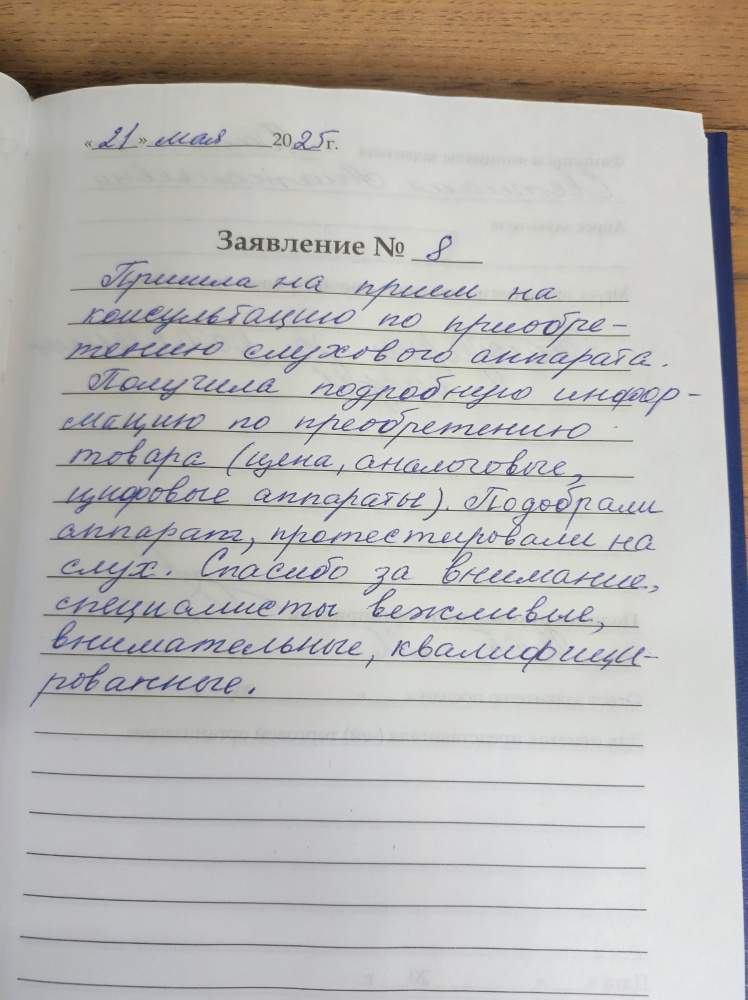 «21» мая 2025г.
Заявление № 8
Пришла на прием на
консультацию по приобре-
тению слухового аппарата.
Получила подробную инфор-
мацию по преобретению
товара (цена, аналоговые,
цифровые аппараты). Подобрали
аппарат, протестировали на
слух. Спасибо за внимание,
специалисты вежливые,
внимательные, квалифици-
рованные.